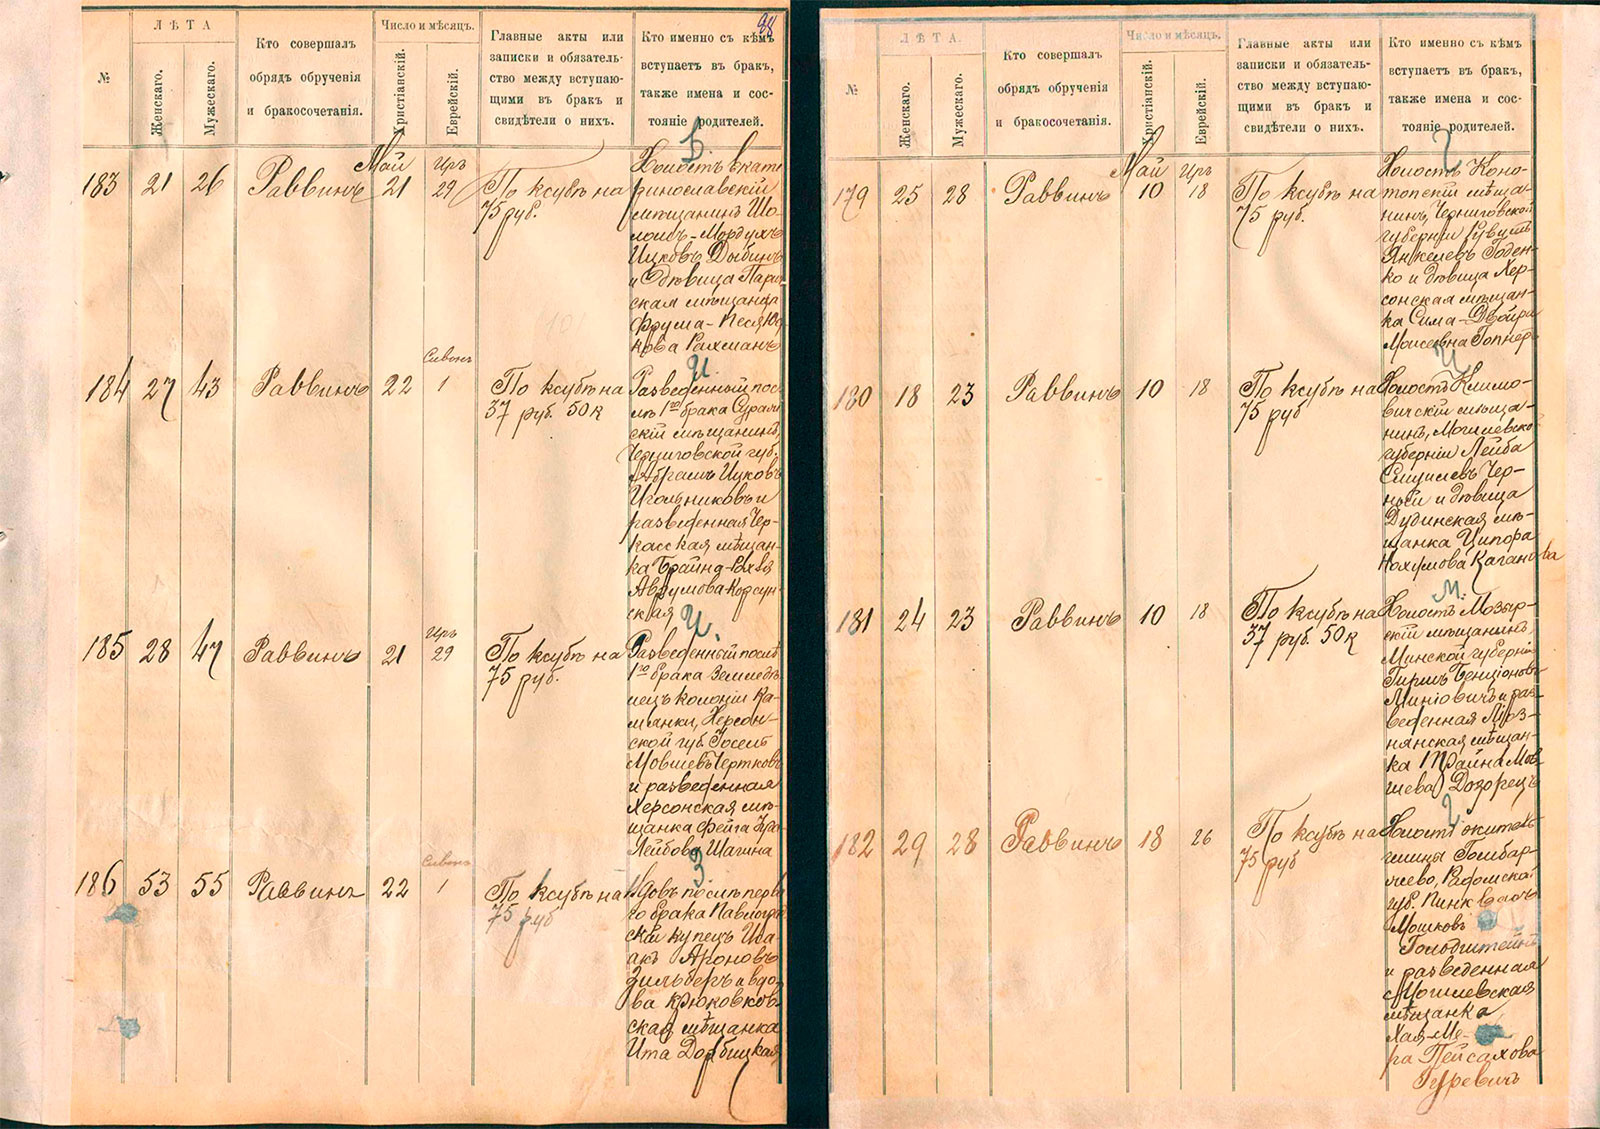 98
№
ЛѢТА
Женскаго.
Мужескаго.
Кто совершалъ
обрядъ обрученія
и бракосочетанія.
Число и мѣсяцъ.
Христіанскій.
Еврейскій.
Главные акты или
записки и обязатель-
ство между вступаю-
щими въ бракъ и
свидѣтели о нихъ.
Кто именно съ кѣмъ
вступаетъ въ бракъ,
также имена и сос-
тояніе родителей.
183 21 26 Раввинъ Май 21 Иръ 29
По ксубѣ на
75 руб.
Холостъ Екате
ринославскій
мѣщанинъ Шо-
ломъ-Мордухъ
Ицковъ Дыбинъ
и дѣвица
ская мѣщанка
Фрума-Песя Юд
кова Рахманъ
184 27 43 Раввинъ 22 Сивонъ 1
По ксубѣ на
37 руб. 50 к
И.
Разведенный пос
лѣ 1го брака Сураж
скій мѣщанинъ,
Черниговской губ.
Абрамъ Ицковъ
Игольниковъ и
разведенная Чер-
касская мѣщан-
ка Брайна-Рохля
Аврумова Корсун
ская
185 28 47 Раввинъ 21 Иръ 29
По ксубѣ на
75 руб.
И.
Разведенный послѣ
1го брака Земледѣ
лецъ колоніи Ка-
мянки, Херсон-
ской губ. Іосель
Мовшевъ Чертковъ
и разведенная
Херсонская мѣ-
щанка Фейга
Лейбова Шагина
186 53 55 Раввинъ 22 Сивонъ 1
По ксубѣ на
75 руб
З
Вдовъ послѣ перва
го брака Павлоград
скій купецъ Иса-
акъ Ароновъ
Зильберъ и вдо-
ва Крюковков-
ская мѣщанка
Ита
№
ЛѢТА.
Женскаго.
Мужескаго.
Кто совершалъ
обрядъ обрученія
и бракосочетанія.
Число и мѣсяцъ.
Христіанскій.
Еврейскій.
Главные акты или
записки и обязатель-
ство между вступаю-
щими въ бракъ и
свидѣтели о нихъ.
Кто именно съ кѣмъ
вступаетъ въ бракъ,
также имена и сос-
тояніе родителей.
179 25 28 Раввинъ Май 10 Иръ 18
По ксубѣ на
75 руб.
Холостъ Коно-
топскій мѣща-
нинъ, Черниговской
губерніи
Янкелевъ Годен-
ко и дѣвица Хер-
сонская мѣщан-
ка Сима-Двойра
Моисеевна Гопнеръ
180 18 23 Раввинъ 10 18
По ксубѣ на
75 руб
Холостъ Климо-
вичскій мѣща-
нинъ, Могилевской
губерніи Лейба
Чер-
ный и дѣвица
Дудинская мѣ-
щанка Ципора
Нохумова Каганова
181 24 23 Раввинъ 10 18
По ксубѣ на
37 руб. 50 к
М.
Холостъ Мозыр-
скій мѣщанинъ,
Минской губерніи
Гиршъ Бенціоновъ
Миніовичъ и раз-
веденная Мрз-
нянская мѣщан-
ка Трайна Мов-
шева Дозорецъ
182 29 28 Раввинъ 18 26
По ксубѣ на
75 руб
Холостъ житель
гмины Гомбар-
чево, Радомской
губ. Пинквасъ
Мошковъ
Гольдштейнъ
и разведенная
Могилевская
мѣщанка,
Хая-Ме-
ра Пейсахова
Гуревичъ